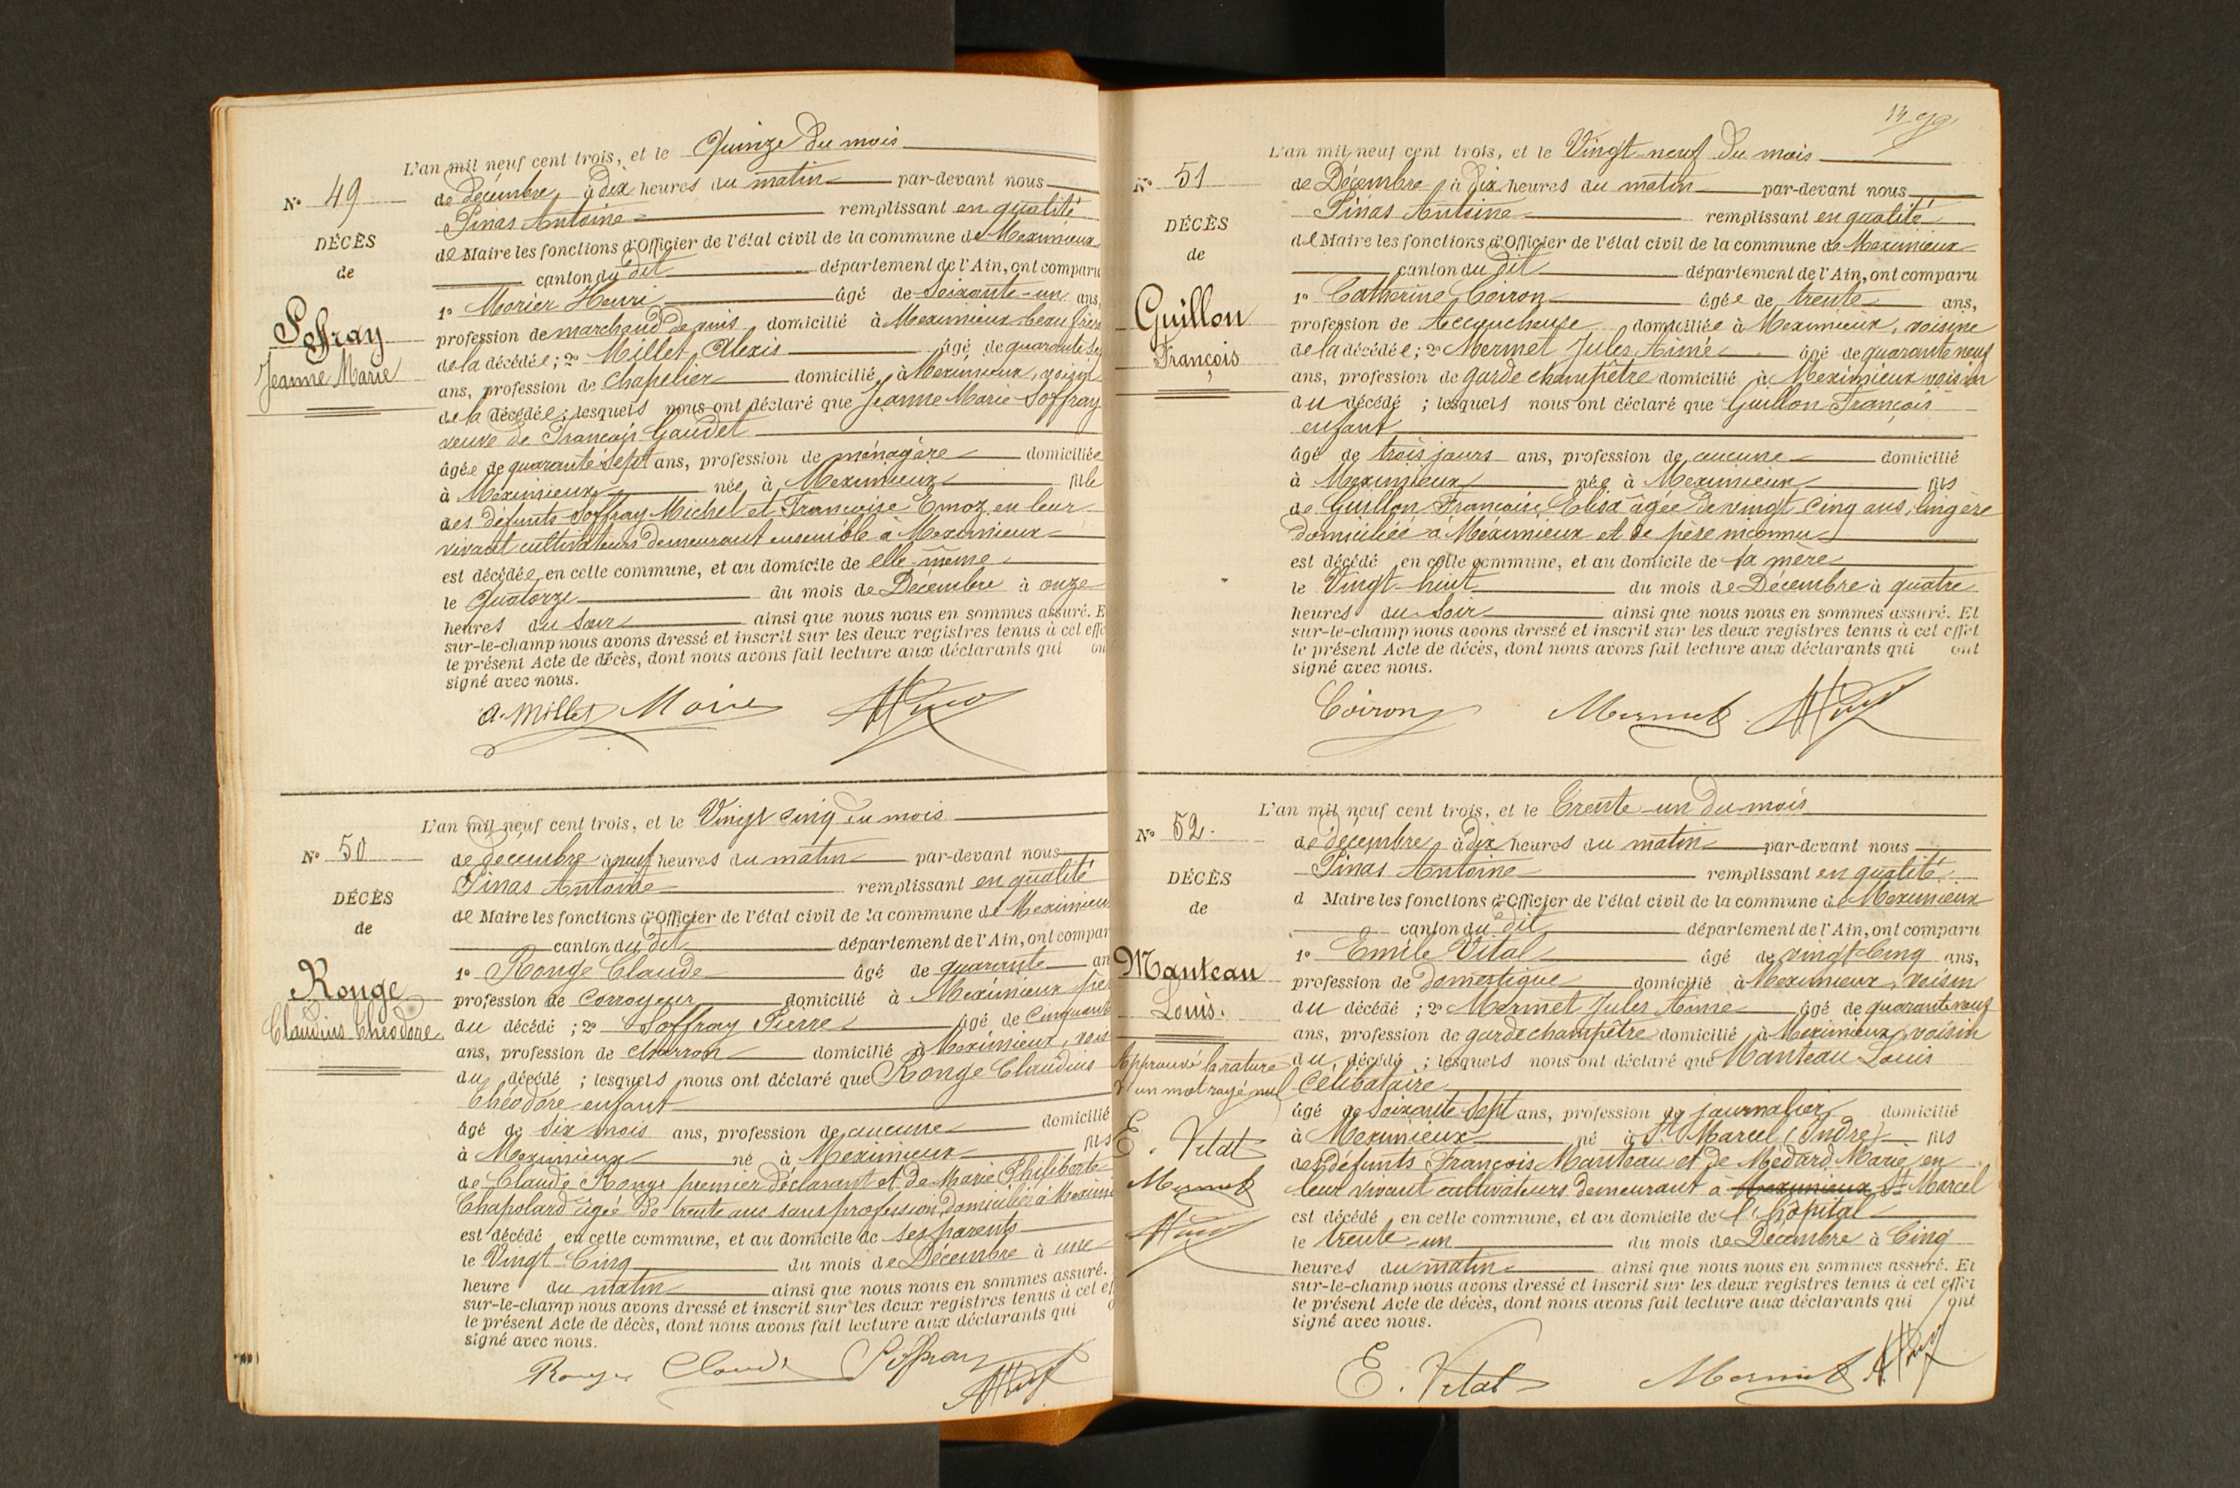 L'an mil neuf cent trois, et le Quinze du mois
N° 49
de décembre à dix heures du matin par-devant nous
Pinas Antoine remplissant en qualité
DÉCÈS
de Maire les fonctions d'Officier de l'état civil de la commune de Meximieux
de
canton du dit département de l'Ain, ont comparu
1° Morier Henri âgé de Soixante-un ans,
Soffray
profession de marchand domicilié à Meximieux beau frère
Jeanne Marie
de la décédée; 2° Millet Alexis âgé de quarante
ans, profession de chapelier domicilié à Meximieux, voisin
de la décédée; lesquels nous ont déclaré que Jeanne Marie Soffray
veuve de François Gaudet
âgée de quarante sept ans, profession de ménagère domiciliée
à Meximieux née à Meximieux fille
des défunts Soffray Michel et Françoise Emoz en leur
vivant cultivateurs demeurant ensemble à Meximieux
est décédée en cette commune, et au domicile de elle-même
le Quatorze du mois de Décembre à onze
heures du soir ainsi que nous nous en sommes assuré. E
sur-le-champ nous avons dressé et inscrit sur les deux registres tenus à cet effe
le présent Acte de décès, dont nous avons fait lecture aux déclarants qui on
signé avec nous.
A. Millet
L'an mil neuf cent trois, et le Vingt cinq du mois
N° 50
de décembre à neuf heures du matin par-devant nous
Pinas Antoine remplissant en qualité
DÉCÈS
de Maire les fonctions d'Officier de l'état civil de la commune de Meximieux
de
canton du dit département de l'Ain, ont compar
1° Ronge Claude âgé de quarante an
Ronge
profession de corroyeur domicilié à Meximieux père
Claudius Théodore
du décédé; 2° Soffray Pierre âgé de Cinquante
ans, profession de charron domicilié à Meximieux, vois
du décédé; lesquels nous ont déclaré que Ronge Claudius
Théodore enfant
âgé de six mois ans, profession de aucune domicilié
à Meximieux né à Meximieux fils
de Claude Ronge premier déclarant et de Marie Philiberte
Chapolard âgée de trente ans sans profession domiciliée à Meximi
est décédé en cette commune, et au domicile de ses parents
le Vingt-Cinq du mois de Décembre à une
heure du matin ainsi que nous nous en sommes assuré.
sur-le-champ nous avons dressé et inscrit sur les deux registres tenus à cet ef
le présent Acte de décès, dont nous avons fait lecture aux déclarants qui o
signé avec nous.
Ronge Claude Soffray
L'an mil neuf cent trois, et le Vingt-neuf du mois
N° 51
de Décembre à dix heures du matin par-devant nous
Pinas Antoine remplissant en qualité
DÉCÈS
de Maire les fonctions d'Officier de l'état civil de la commune de Meximieux
de
canton du dit département de l'Ain, ont comparu
1° Catherine Coiron âgée de trente ans,
Guillon
profession de Accoucheuse domiciliée à Meximieux, voisine
François
de la décédée; 2° Mermet Jules Aimé âgé de quarante neuf
ans, profession de garde champêtre domicilié à Meximieux voisin
du décédé; lesquels nous ont déclaré que Guillon François
enfant
âgé de trois jours ans, profession de aucune domicilié
à Meximieux née à Meximieux fils
de Guillon Françoise Elisa âgée de vingt cinq ans, lingère
domiciliée à Méximieux et de père inconnu
est décédé en cette commune, et au domicile de sa mère
le Vingt-huit du mois de Décembre à quatre
heures du soir ainsi que nous nous en sommes assuré. Et
sur-le-champ nous avons dressé et inscrit sur les deux registres tenus à cet effet
le présent Acte de décès, dont nous avons fait lecture aux déclarants qui ont
signé avec nous.
Coiron Mermet
L'an mil neuf cent trois, et le Trente-un du mois
N° 52.
de décembre à dix heures du matin par-devant nous
Pinas Antoine remplissant en qualité
DÉCÈS
d Maire les fonctions d'Officier de l'état civil de la commune de Meximieux
de
canton du dit département de l'Ain, ont comparu
1° Emile Vital âgé de vingt-cinq ans,
Manteau
profession de domestique domicilié à Meximieux, voisin
Louis.
du décédé; 2° Mermet Jules Aimé âgé de quarante neuf
ans, profession de garde champêtre domicilié à Meximieux, voisin
du décédé; lesquels nous ont déclaré que Manteau Louis
Célibataire
Approuvé la rature
d'un mot rayé nul
âgé de soixante-sept ans, profession de journalier domicilié
E. Vital
à Meximieux né à St Marcel (Indre) fils
des défunts François Manteau et de Médard Marie, en
Mermet
leur vivant cultivateurs demeurant à Meximieux St Marcel
est décédé en cette commune, et au domicile de l'hôpital
le trente-un du mois de Décembre à Cinq
heures du matin ainsi que nous nous en sommes assuré. Et
sur-le-champ nous avons dressé et inscrit sur les deux registres tenus à cet effet
le présent Acte de décès, dont nous avons fait lecture aux déclarants qui ont
signé avec nous.
E. Vital Mermet